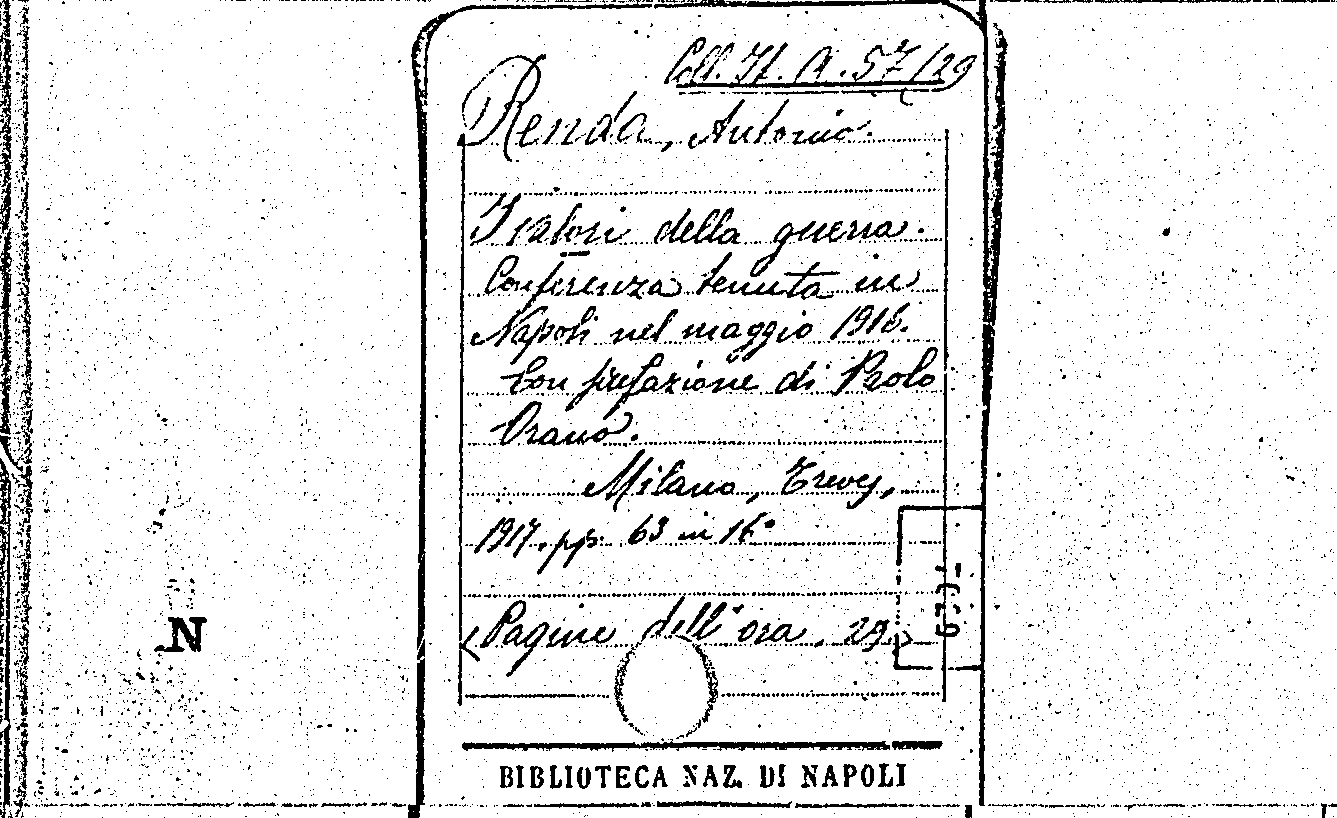 Coll. It. A. 57/29
Renda, Antonio.
I valori della guerra.
Conferenza tenuta in
Napoli nel maggio 1916.
Con prefazione di Paolo
Orano.
Milano, Treves,
1917. pp. 63 in 16°
N
<Pagine dell'ora, 29>
BIBLIOTECA NAZ. DI NAPOLI